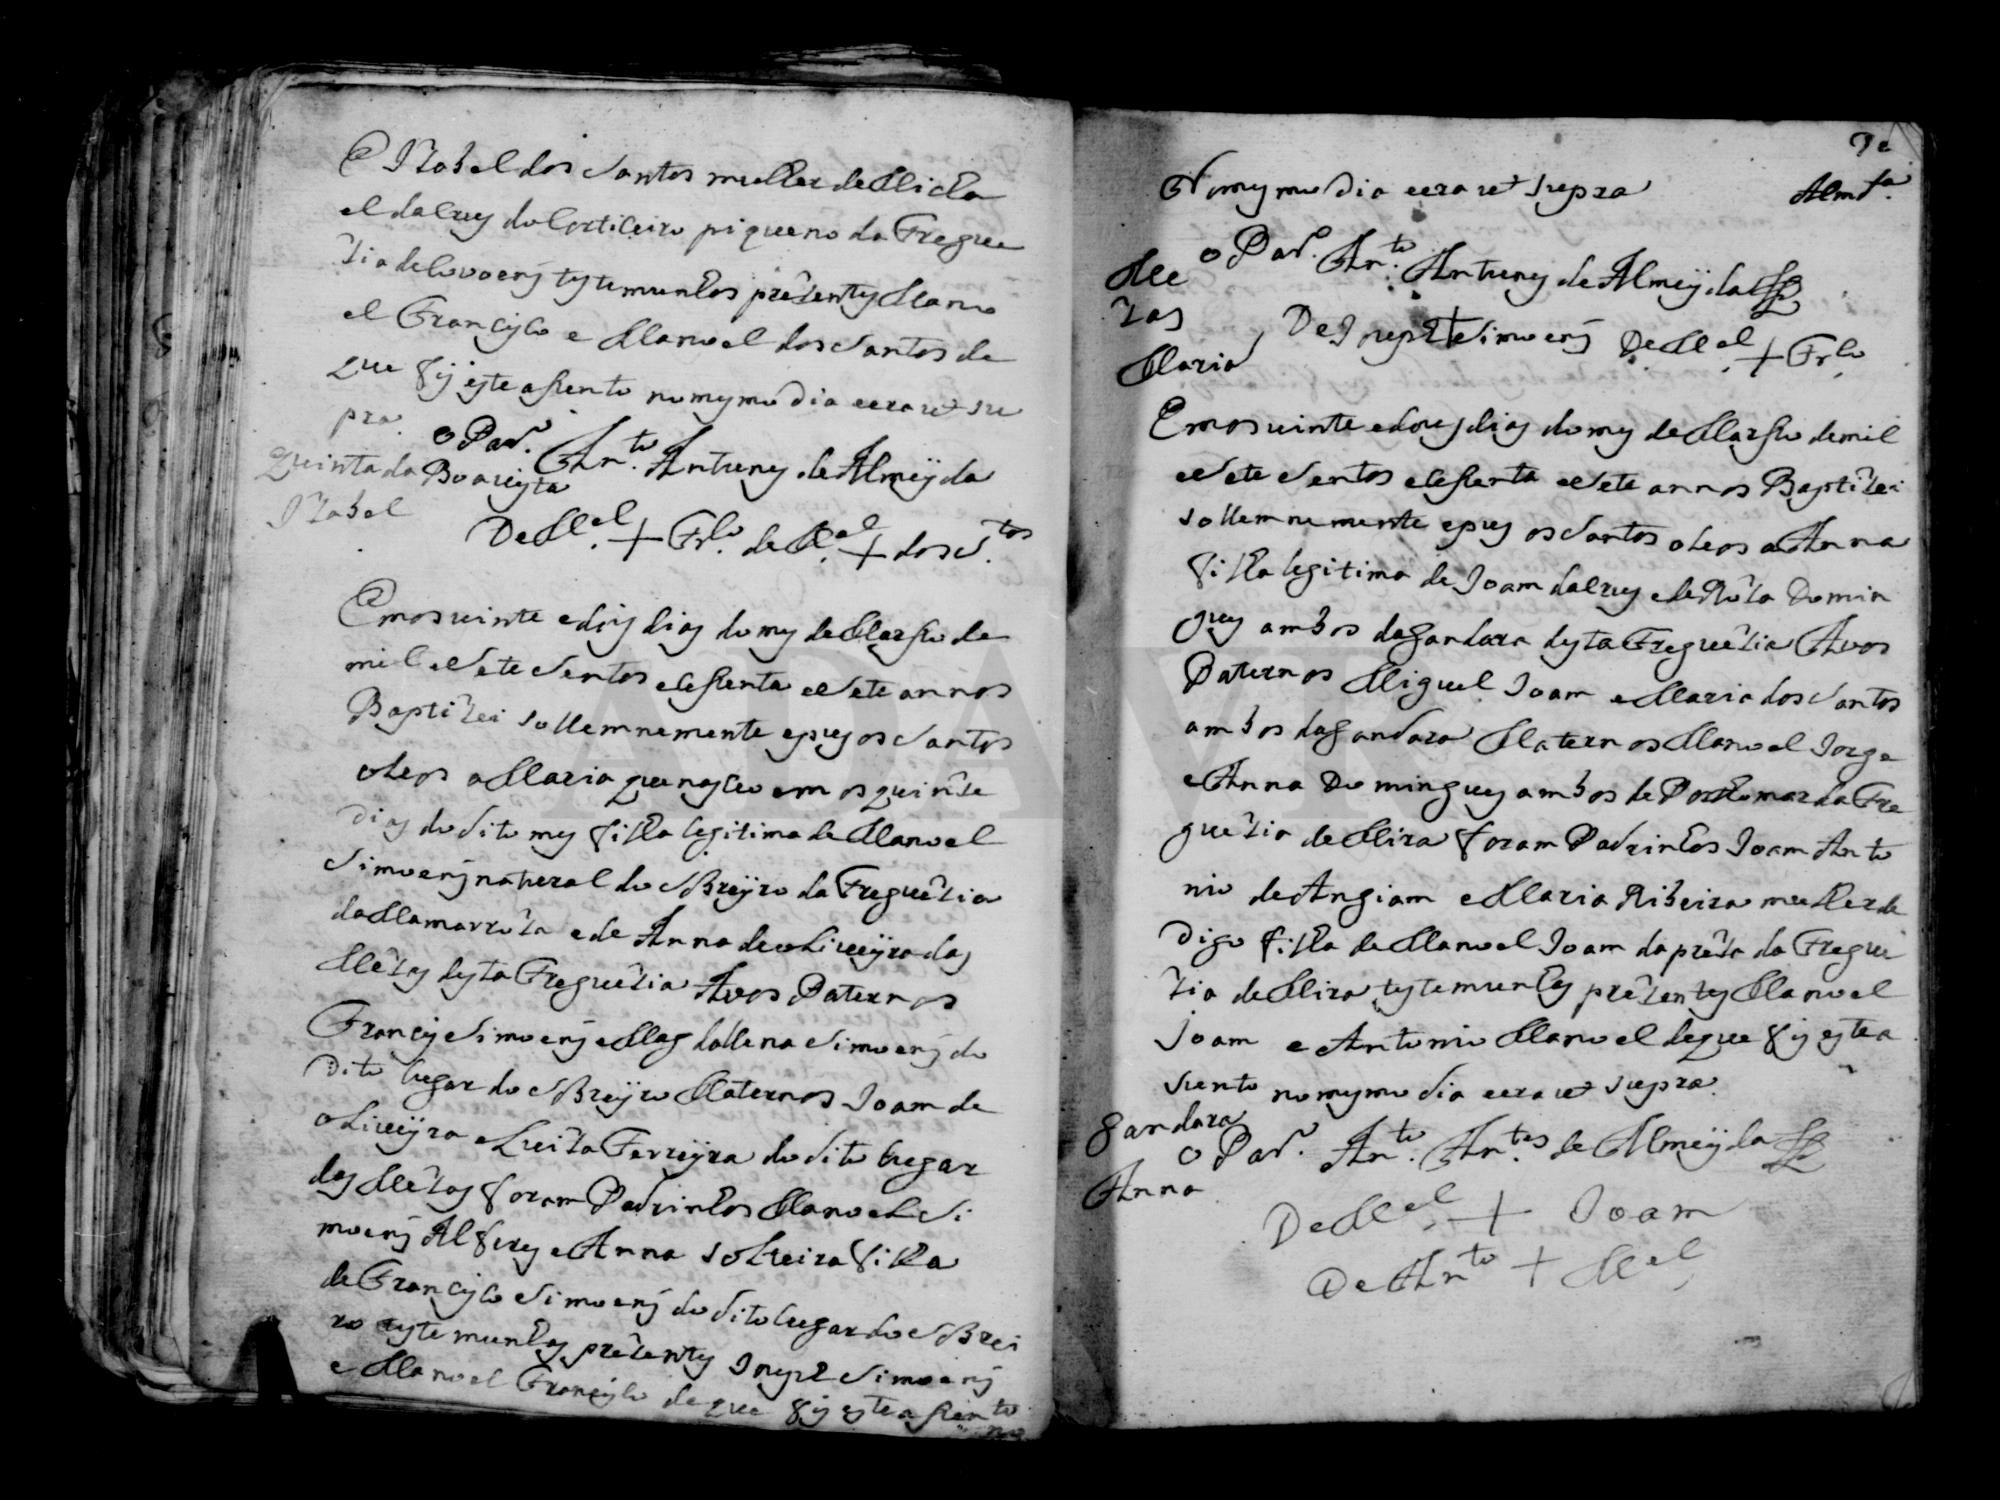 E Izabel dos Santos mulher de Micha
el dalruy do Corticeiro piqueno da Fregue
zia de Covoens tystemunhos prezentys Mano
el Francysco e Manoel dos Santos de
que fis este asento no mysmo dia eera ut su
pra.
o Par.º An.to Antunes de Almeyda
quinta da Boavysta
Izabel
De M.el + Fr.co de M.el + dos S.tos
Em os vinte e dois dias do mes de Marsso de
mil e Sete Sentos e sesenta e Sete annos
Baptizei sollemnemente e pus os Santos
oleos a Maria que nasceo em os quinze
Dias do dito mes filha legitima de Manoel
Simoens natural do Breyro da Freguezia
da Mamarroza e de Anna de oLiveyra das
Mezas desta Freguezia Avos Paternos
Francisco Simoens e Magdallena Simoens do
Dito lugar do Breyro Maternos Joam de
oLiveyra e Luiza Ferreyra do dito lugar
das Mezas foram Padrinhos Manoel Si
moens Alferes e Anna Solteira filha
de Francysco Simoens do dito lugar do Brei
ro tystemunhas prezentys Simoens
e Manoel Francysco de que fis este asento
no
No mysmo dia eera ut supra
Almd.a
o Par.º An.to Antunes de Almeyda
Me
zas
Maria
De Simoens De M.el + Fr.co
Em os vinte e dous dias do mes de Marsso de mil
e Sete Sentos e sesenta e Sete annos Baptizei
sollemnemente e pus os Santos oleos a Anna
filha legitima de Joam dalruy e de Roza Domin
gues ambos da Gandara desta Freguezia Avos
Paternos Miguel Joam e Maria dos Santos
ambos da Gandara Maternos Manoel Jorge
e Anna Domingues ambos de Portomar da Fre
guezia de Mira foram Padrinhos Joam Anto
nio de Angiam e Maria Ribeira mulher de
Digo filha de Manoel Joam da preza da Fregue
zia de Mira tystemunhas prezentys Manoel
Joam e Antonio Manoel de que fis este a
sento no mysmo dia eera ut supra.
Gandara
Anna
o Par.º An.to An.tes de Almeyda
De M.el + Joam
De An.to + M.el